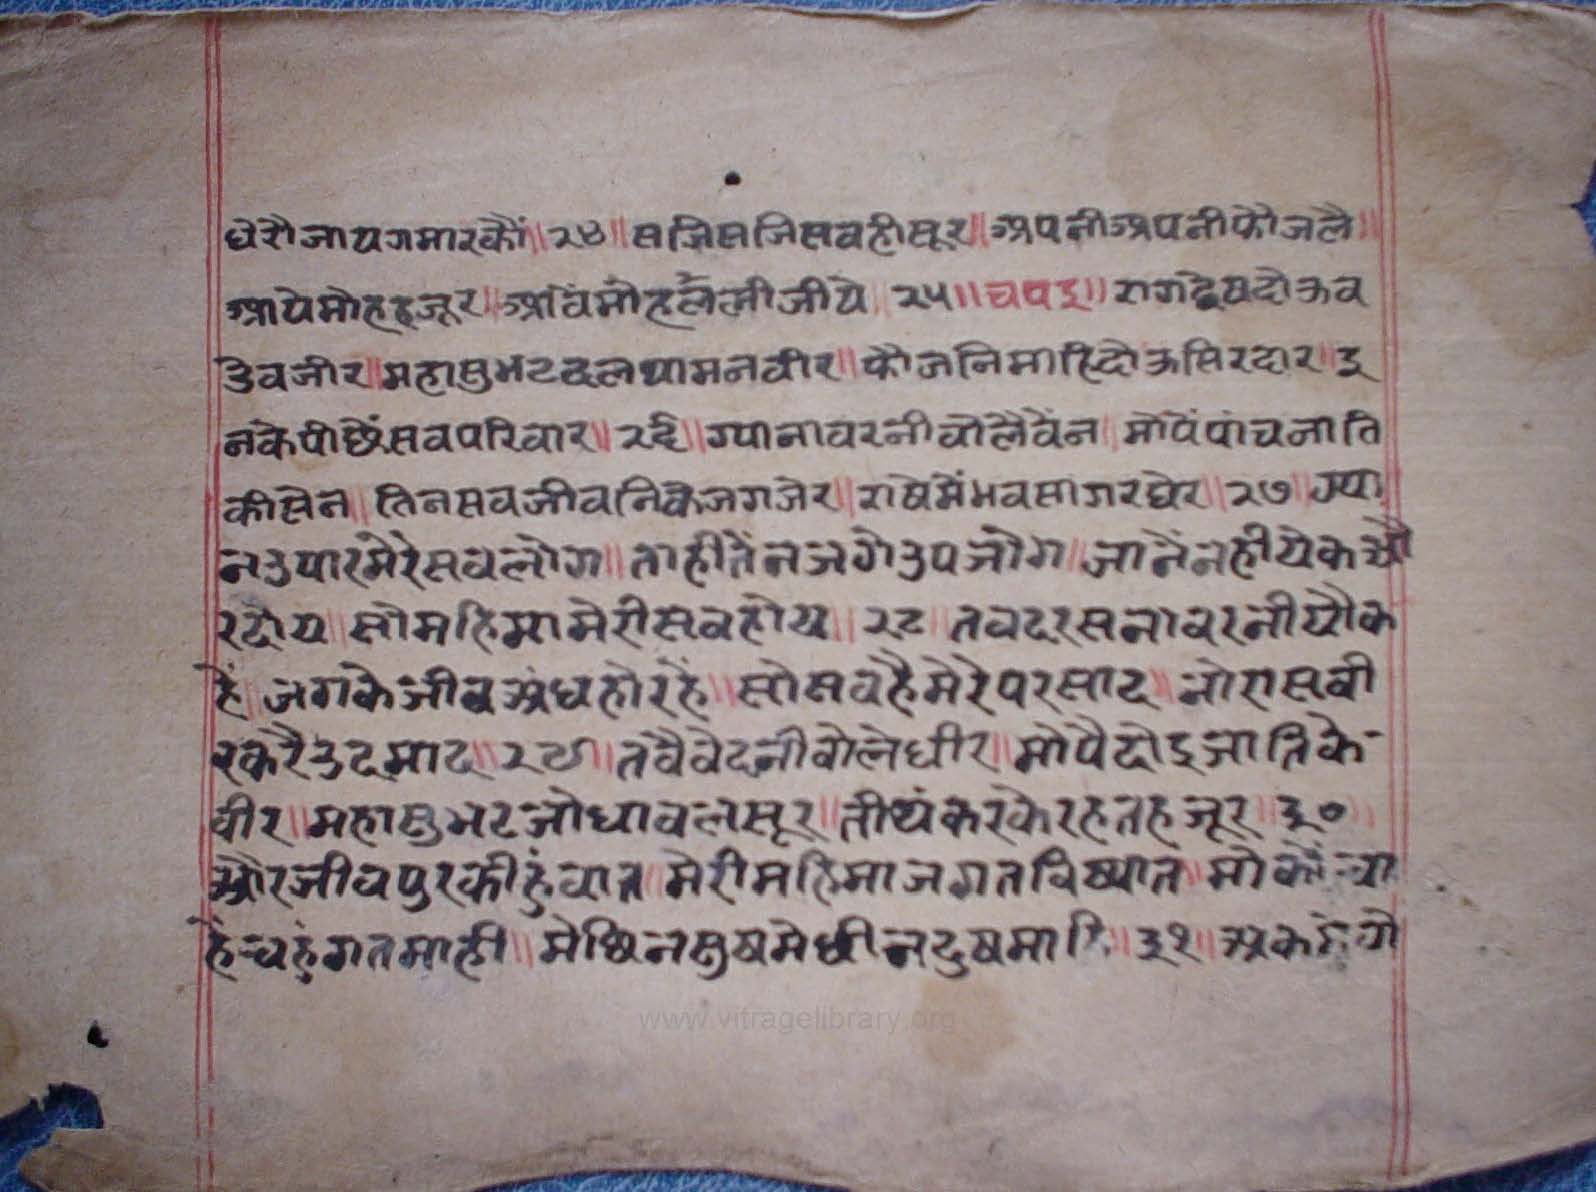 घेरौजायगमारकौं॥२४॥सजिसजिसवहीसूर॥अपनीअपनीफौजलै॥
आयेमोहहजूर॥अविंमोहलैलीजीये॥२५॥चपइ॥रागद्वेषदोऊव
उवजीर॥महासुभटदलथामनवीर॥फौजनिमाहिदोऊसिरदार॥इ
नकेपीछैंसवपरिवार॥२६॥ग्यानावरनीवोलैवेंन॥मोपेंपांचजाति
कीसेन॥तिनसवजीवनिकैजगजेर॥राषेमेंभवसागरघेर॥२७॥ग्या
नउपारमेरेसवलोग॥ताहीतेंनजगेउपजोग॥जानेंनहीयेकऔ
रदोय॥सोमहिमामेरीसवहोय॥२८॥तवदरसनावरनीयौक
हें॥जगकेजीवअंधहोरहें॥सोसवहैमेरेपरसाद॥नोरासवी
रकरैउदमाद॥२९॥तवैवेदनीवोलेधीर॥मोपैदोइजातिके
वीर॥महासुभटजोधावलसूर॥तीर्थंकरकेरहतहजूर॥३०॥
औरजीवपुरकीहुंवात॥मेरीमहिमाजगतविष्यात॥मोकोंचा
हेंचहुंगतमाही॥मेछिनसुषमेछीनदुषमाहि॥३१॥
www.vitragelibrary.org